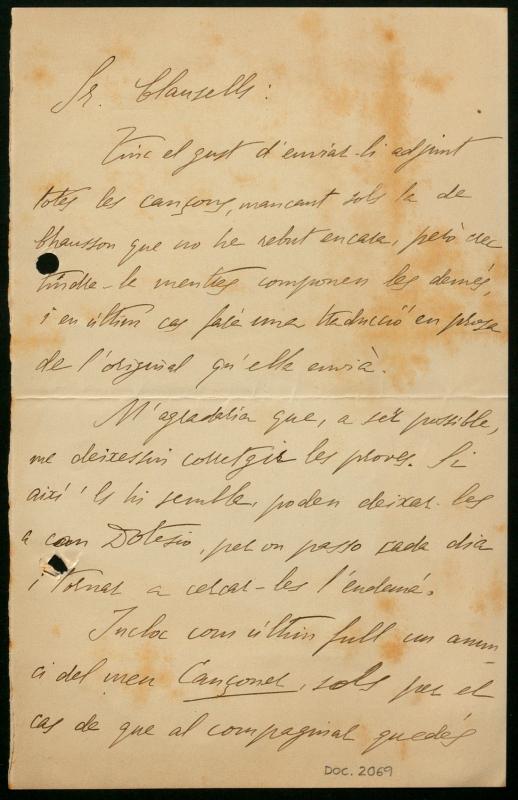 Sr. Clausells:
Tinc el gust d'enviar-li adjunt
totes les cançons, mancant sols la de
Chausson que no he rebut encara, però crec
tindre-la mentres componen les demés,
i en últim cas faré una traducció en prosa
de l'original qu'ella envià.
M'agradaria que, a sër possible,
me deixessin corretgir les proves. Si
aixi 'ls hi sembla, poden deixar-les
a can Dotesio, per on passo cada dia
i tornar a cercar-les l'endemá.
Incloc com últim full un anun-
ci del meu Cançoner, sols per el
cas de que al compaginar quedés
DOC. 2069